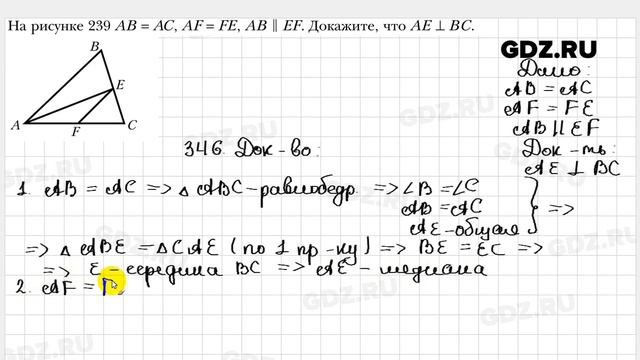 На рисунке 239 AB = AC, AF = FE, AB ∥ EF. Докажите, что AE ⊥ BC.
GDZ.RU
B
E
A
F
C
Дано:
AB = AC
AF = FE
AB ∥ EF
Док-ть:
AE ⊥ BC
346. Док-во:
1. AB = AC => △ABC - равнобедр. => ∠B = ∠C
AB = AC
AE - общая
=>
=> △ABE = △CAE (по 1 пр-ку) => BE = EC =>
=> E - середина BC => AE - медиана
2. AF = F